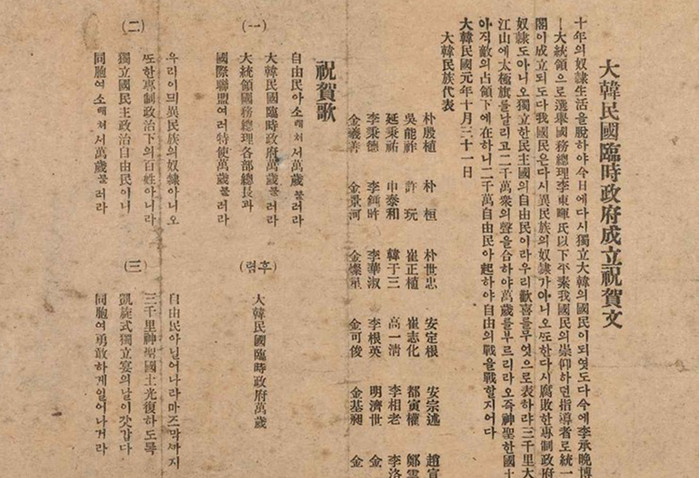 大韓民國臨時政府成立祝賀文
十年의奴隷生活을脫하야今日에다시獨立大韓의國民이되엿도다今에李承晩博
大統領으로選擧國務總理李東輝氏以下平素我國民의崇仰하던指導者로統一
閣이成立되도다我國民은다시異民族의奴隷가아니오ᄯᅩ한다시腐敗한專制政府
奴隷도아니오獨立한民主國의自由民이라우리歡喜를무엇으로表하랴三千里大
江山에太極旗를날리고二千萬衆의聲을合하야萬歲를부르리라오즉神聖한國土
아직敵의占領下에在하니二千萬自由民아起하야自由의戰을戰할지어다
大韓民國元年十月三十一日
大韓民族代表
朴殷植 朴桓 朴世忠 安定根 安宗述 趙宣
吳能祚 許玩 崔正植 崔志化 都寅權 鄭
延秉祐 申泰和 韓于三 高一淸 李相老 李洛
李秉德 李鍾旿 李華淑 李根英 明濟世 金
金義善 金景河 金燦星 金可俊 金基昶 金
祝賀歌
(一)
自由民아소래쳐서萬歲불러라
大韓民國臨時政府萬歲불러라
大統領國務總理各部總長과
國際聯盟여러特使萬歲불러라
(후렴)
大韓民國臨時政府萬歲
(二)
우리이믜異民族의奴隷아니오
ᄯᅩ한專制政治下의百姓아니라
獨立國民主政治自由民이니
同胞여소래쳐서萬歲불러라
(三)
自由民아닐어나라마즈막ᄭᅡ지
三千里神聖國土光復하도록
凱旋式獨立宴의날이갓갑다
同胞여勇敢하게일어나거라